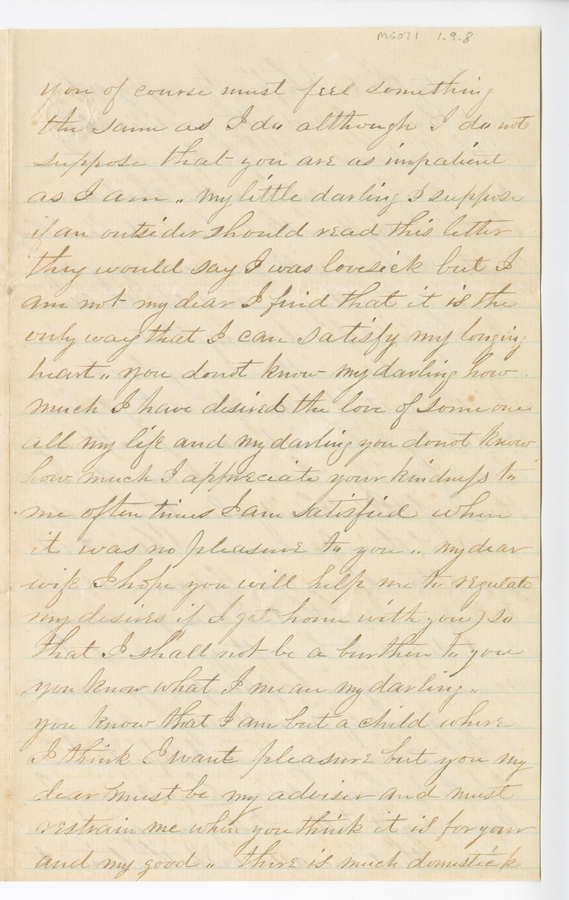 MS071 1.9.8
you of course must feel something
the same as I do although I do not
suppose that you are as impatient
as I am „ my little darling I suppose
if an outsider should read this letter
they would say I was lovesick but I
am not my dear I find that it is the
only way that I can satisfy my longing
heart „ you donot know my darling how
much I have desired the love of some one
all my life and my darling you donot know
how much I appreciate your kindness to
me often times I am satisfied when
it was no pleasure to you „ my dear
wife I hope you will help me to regulate
my desires if I get home with you) so
that I shall not be a burthen to you
you know what I mean my darling„
you know that I am but a child where
I think I want pleasure but you my
dear must be my adviser and must
restrain me when you think it is for your
and my good „ there is much domestick